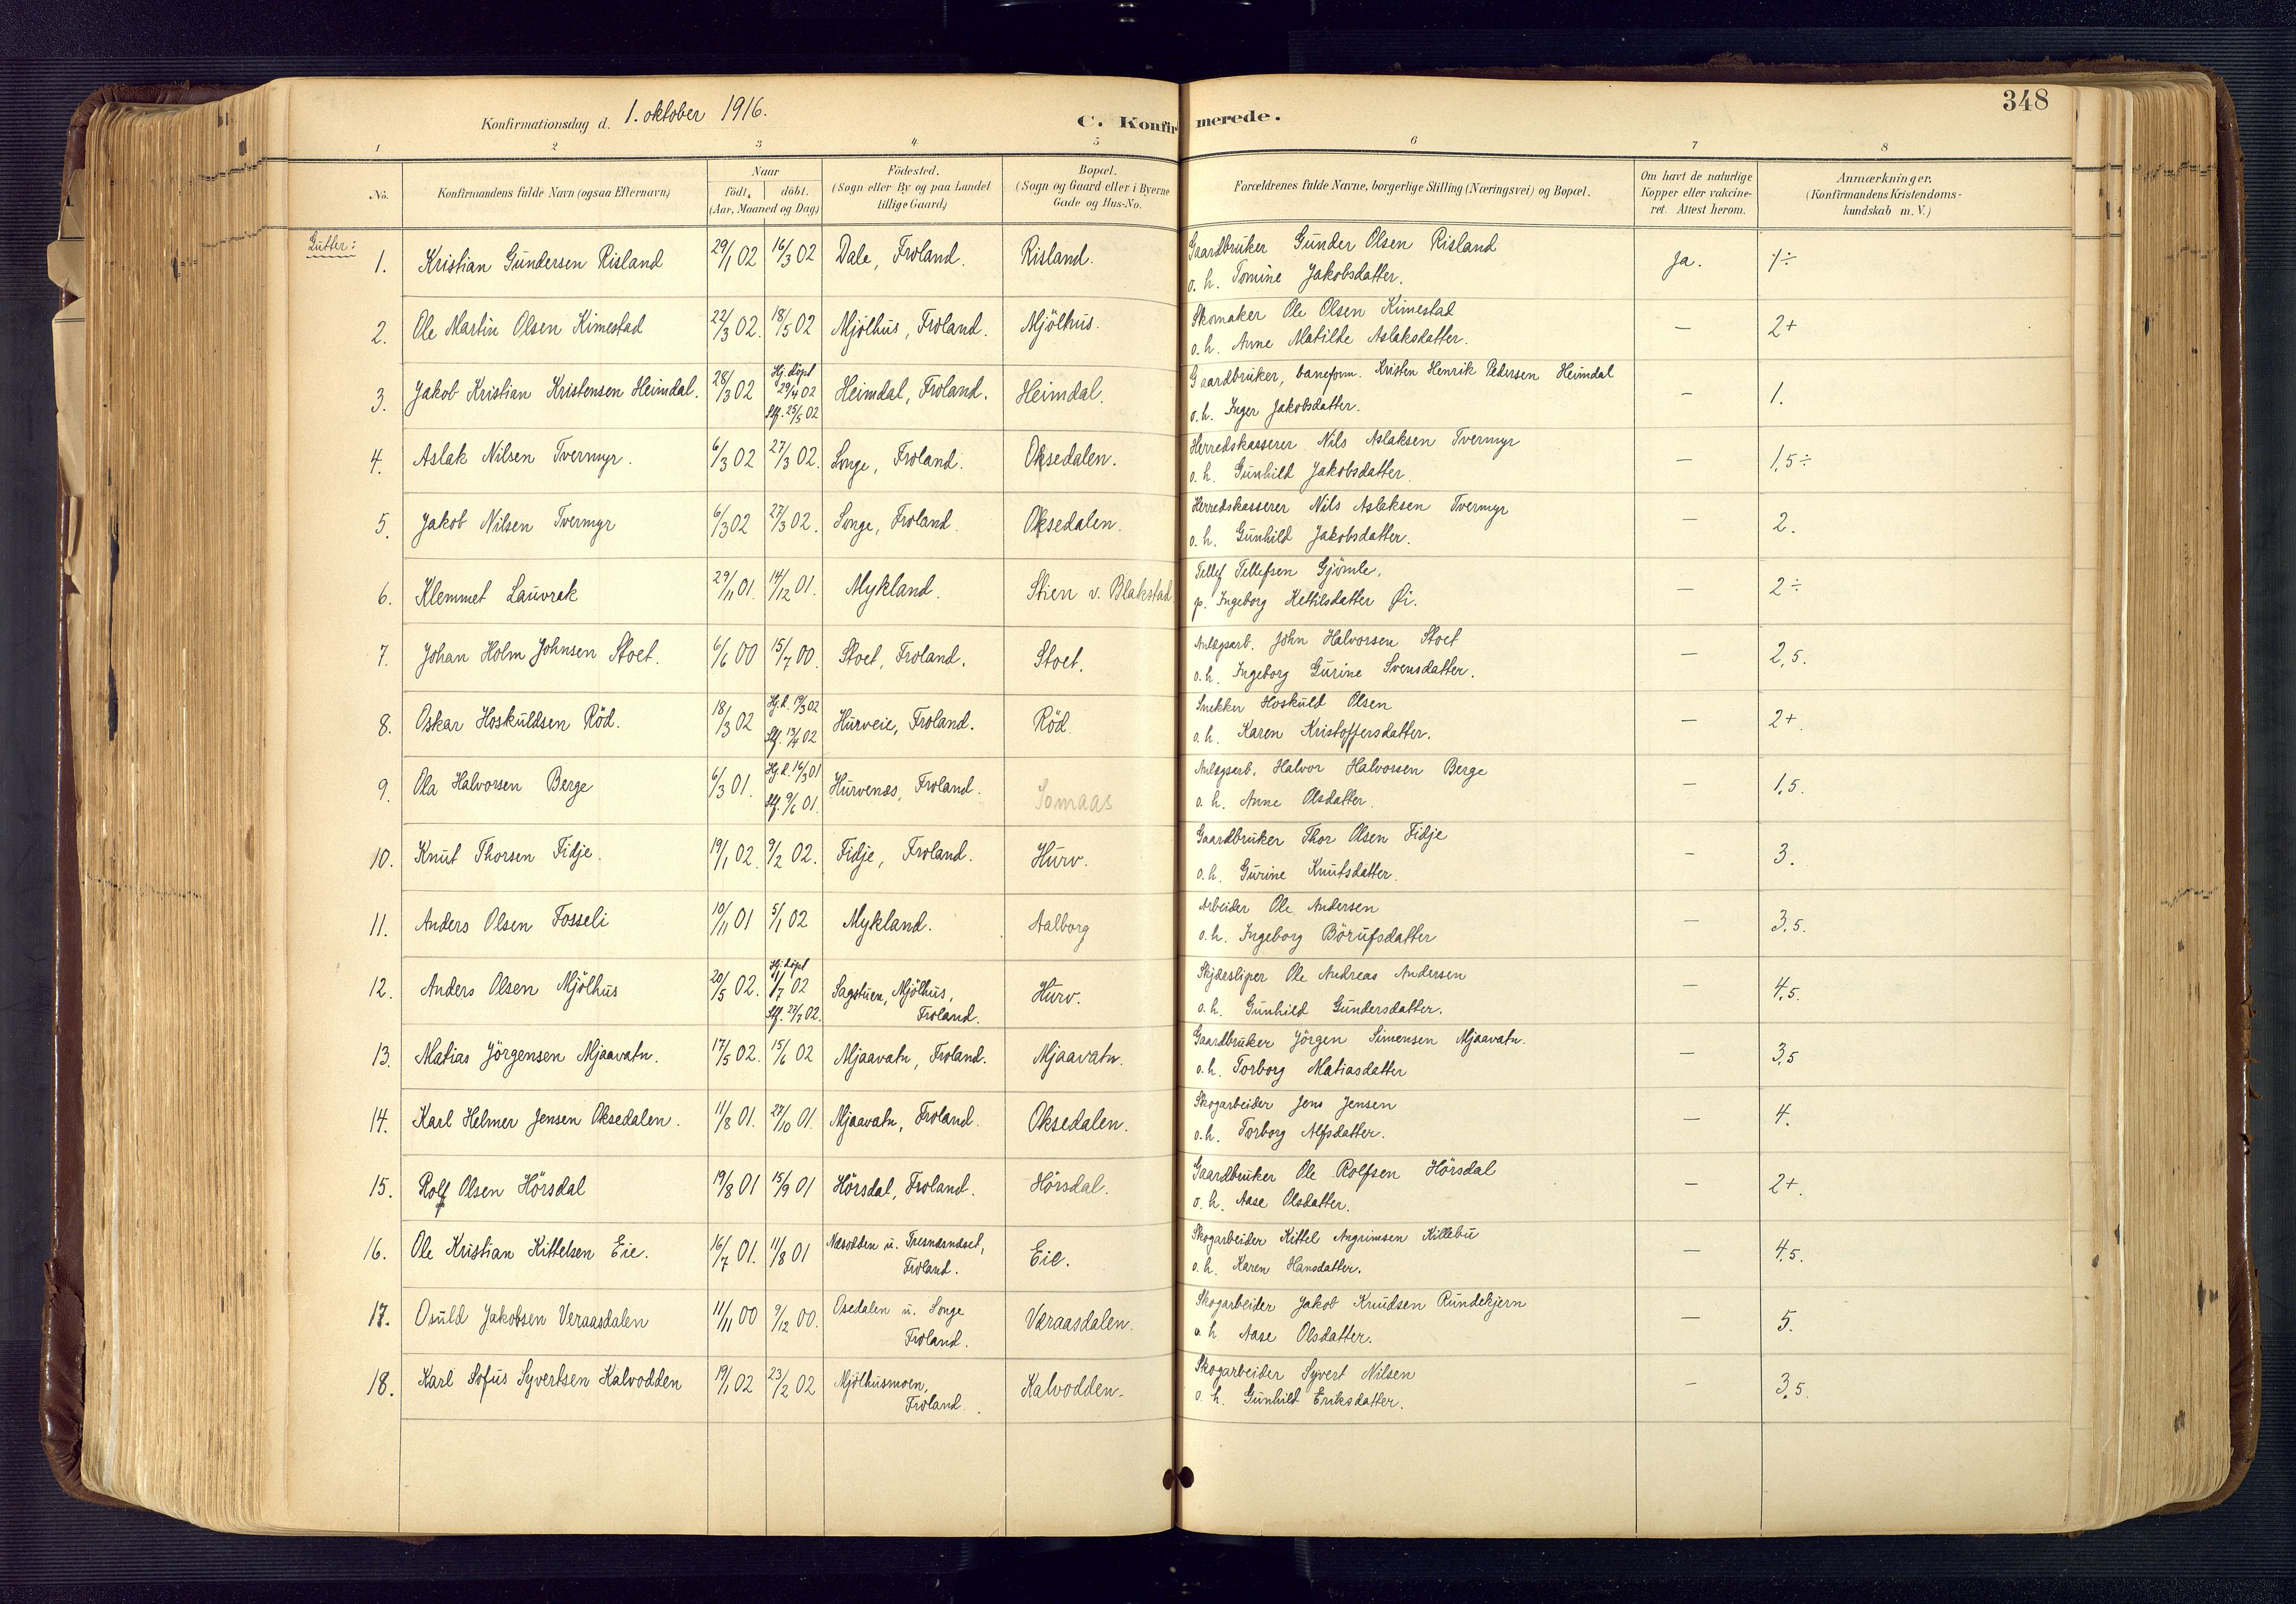 348
Konfirmationsdag d. 1. oktober 1916.
C. Konfirmerede.
1 2 3 4 5 6 7 8
No. Konfirmandens fulde Navn (ogsaa Efternavn) Naar født, døbt. (Aar, Maaned og Dag) Fødested. (Sogn eller By og paa Landet tillige Gaard) Bopæl. (Sogn og Gaard eller i Byerne Gade og Hus-No. Forældrenes fulde Navne, borgerlige Stilling (Næringsvei) og Bopæl. Om havt de naturlige Kopper eller vakcineret. Attest herom. Anmærkninger. (Konfirmandens Kristendomskundskab m. V.)
Gutter:
1. Kristian Gundersen Risland 29/1 02 16/3 02 Dale, Froland. Risland. Gaardbruker Gunder Olsen Risland
o. h. Tomine Jakobsdatter. Ja. 1÷
2. Ole Martin Olsen Kimestad 22/3 02. 18/5 02 Mjölhus, Froland. Mjölhus. Skomaker Ole Olsen Kimestad
o. h. Anne Matilde Aslaksdatter. — 2+
3. Jakob Kristian Kristensen Heimdal. 28/3 02 Hj. döpt 29/4 02 Stf. 25/5 02 Heimdal, Froland. Heimdal. Gaardbruker, baneform. Kristen Henrik Pedersen Heimdal
o. h. Inger Jakobsdatter. — 1.
4. Aslak Nilsen Tvermyr. 6/3 02 27/3 02. Songe, Froland. Oksedalen. Herredskasserer Nils Aslaksen Tvermyr
o. h. Gunhild Jakobsdatter. — 1,5÷
5. Jakob Nilsen Tvermyr 6/3 02 27/3 02. Songe, Froland. Oksedalen. Herredskasserer Nils Aslaksen Tvermyr
o. h. Gunhild Jakobsdatter. — 2.
6. Klemmet Lauvrak 29/11 01. 14/12 01. Mykland. Stien v. Blakstad Tellef Tellefsen Gjömle,
p. Ingeborg Kettilsdatter Øi. — 2÷
7. Johan Holm Johnsen Stoet. 6/6 00 15/7 00. Stoet, Froland. Stoet. Anlægsarb. John Halvorsen Stoet
o. h. Ingeborg Gurine Svensdatter. — 2,5.
8. Oskar Hoskuldsen Röd. 18/3 02 Hj. d. 19/3 02 Stf. 13/4 02 Hurveie, Froland. Röd. Snekker Hoskuld Olsen
o. h. Karen Kristoffersdatter. — 2+
9. Ola Halvorsen Berge 6/3 01. Hj. d. 16/3 01 Stf. 9/6 01. Hurvenes, Froland. Somaas Anlægsarb. Halvor Halvorsen Berge
o. h. Anne Olsdatter. — 1,5.
10. Knut Thorsen Fidje. 19/1 02. 9/2 02. Fidje, Froland. Hurv. Gaardbruker Thor Olsen Fidje
o. h. Gurine Knutsdatter. — 3.
11. Anders Olsen Fosseli 10/11 01 5/1 02 Mykland. Aalborg Arbeider Ole Andersen
o. h. Ingeborg Börufsdatter — 3,5.
12. Anders Olsen Mjölhus 20/5 02. Hj. döpt 1/7 02 Stf. 27/7 02. Sagstuen, Mjölhus, Froland. Hurv. Skjæsliper Ole Andreas Andersen
o. h. Gunhild Gundersdatter. — 4,5.
13. Matias Jörgensen Mjaavatn. 17/5 02. 15/6 02 Mjaavatn, Froland. Mjaavatn. Gaardbruker Jörgen Simensen Mjaavatn.
o. h. Torborg Matiasdatter — 3,5
14. Karl Helmer Jensen Oksedalen. 11/8 01. 27/10 01. Mjaavatn, Froland. Oksedalen. Skogarbeider Jens Jensen
o. h. Torborg Alfsdatter. — 4.
15. Rolf Olsen Hörsdal 19/8 01 15/9 01 Hörsdal, Froland. Hörsdal. Gaardbruker Ole Rolfsen Hörsdal
o. h. Aase Olsdatter. — 2+.
16. Ole Kristian Kittelsen Eie. 16/7 01. 11/8 01 Næsodden u. Froland. Eie. Skogarbeider Kittel Angrimsen Killebu
o. h. Karen Hansdatter. — 4,5.
17. Osuld Jakobsen Veraasdalen 11/11 00 9/12 00. Osedalen u. Songe Froland. Væraasdalen. Skogarbeider Jakob Knudsen Rundekjern
o. h. Aase Olsdatter. — 5.
18. Karl Sofus Syvertsen Kalvodden 19/1 02 23/2 02 Mjölhusmoen, Froland. Kalvodden. Skogarbeider Syvert Nilsen
o. h. Gunhild Eriksdatter. — 3,5.